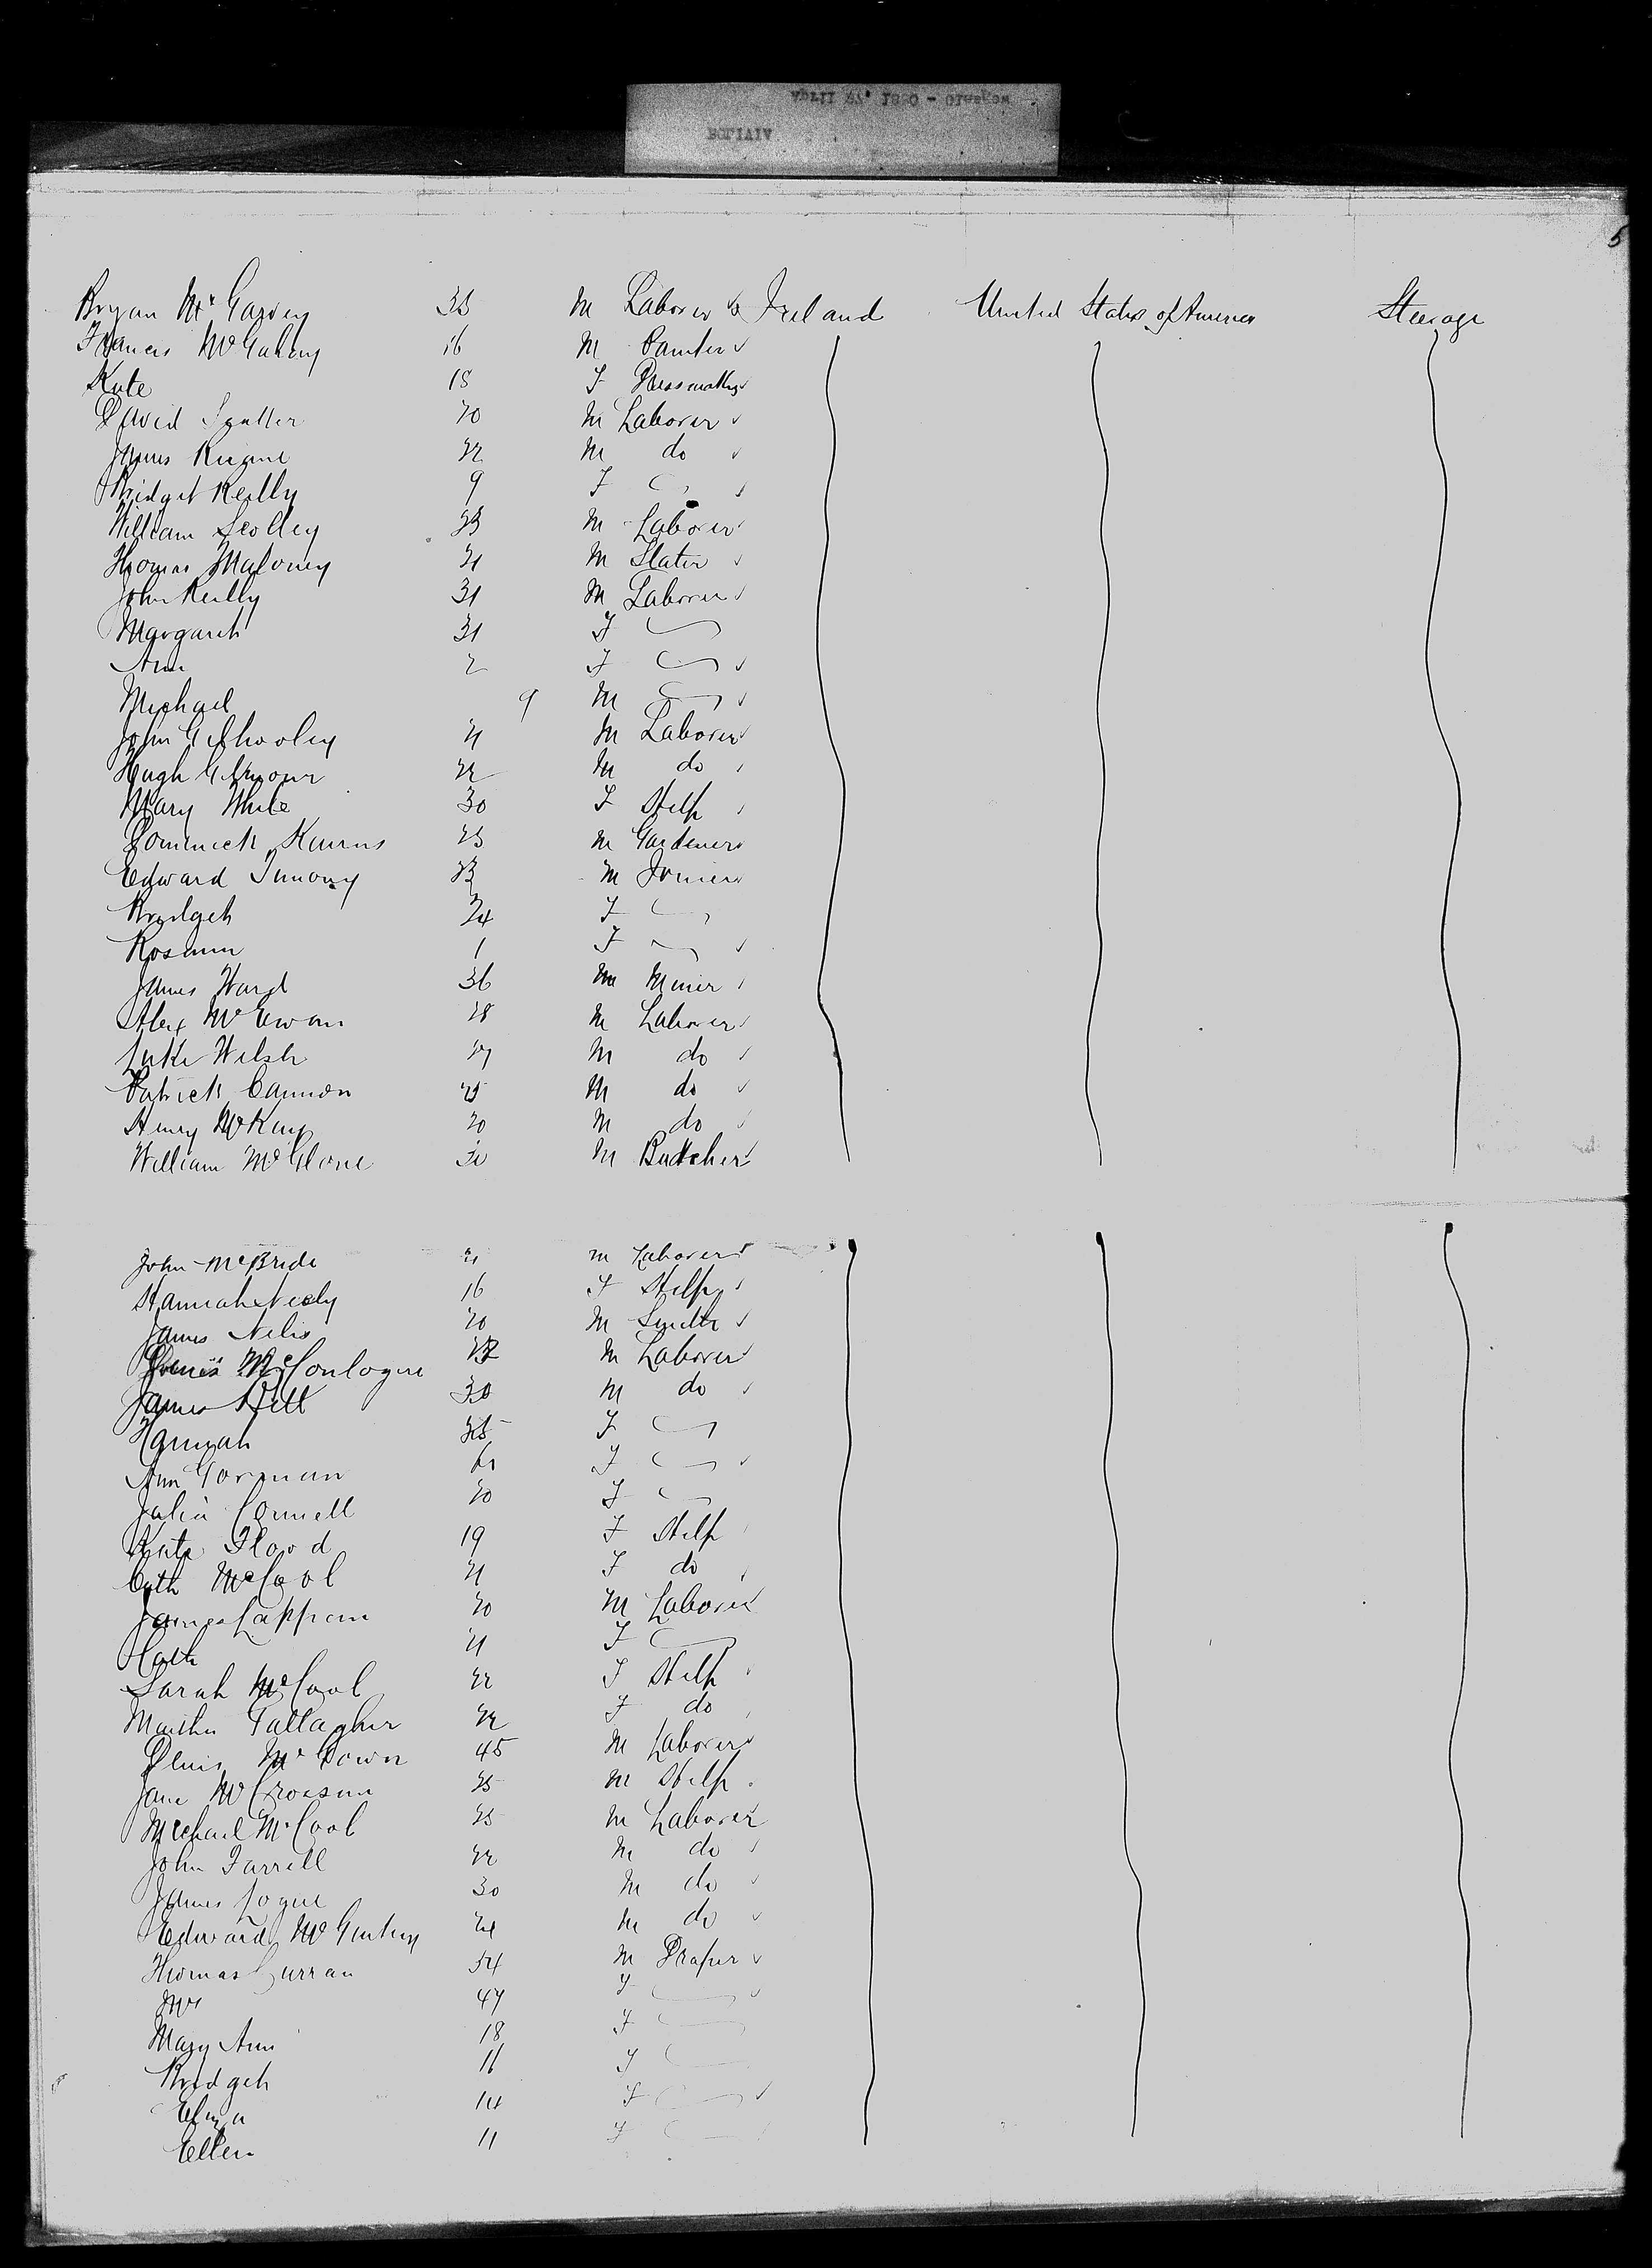 5
Bryan McGarvey 35 M Laborer Ireland United States of America Steerage
Francis McGahey 16 M Painter
Kate 18 F Dressmaker
David 20 M Laborer
James 22 M do
Bridget Reilly 9 F
William Scolley 23 M Laborer
Thomas Maloney 21 M Slater
John Reilly 31 M Laborer
Margaret 31 F
Ann 2 F
Michael 9 M
John Gilhooley 21 M Laborer
Hugh Gilmour 22 M do
Mary White 30 F Help
Dominick Kearns 25 M Gardener
Edward Timony 23 M Joiner
Bridget 24 F
Rosann 1 F
James Ward 36 M Miner
Alex McEwan 28 M Laborer
Luke Welsh 27 M do
Patrick Cannon 25 M do
Henry McKay 20 M do
William McGlone 30 M Butcher
John McBride 21 M Laborer
Hannah Neely 16 F Help
James Nelis 20 M Smith
McConlogue M Laborer
James Hill 30 M do
Hannah 25 F
Ann Gorman F
Julia Connell 20 F
Kate Flood 19 F Help
Cath McCool 21 F do
James Lappan 20 M Laborer
Cath 21 F
Sarah McCool 22 F Help
Martha Gallagher 22 F do
Denis McGown 45 M Laborer
Jane McCrossan 25 M Help
Michael McCool 25 M Laborer
John Farrell 22 M do
James Logue 30 M do
Edward McGinley M do
Thomas Curran 54 M Draper
Mrs 47 F
Mary Ann 18 F
Bridget 16 F
Eliza 14 F
Ellen 11 F